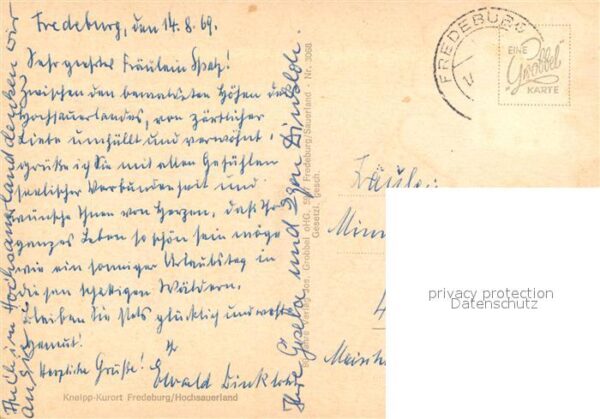 Fredeburg, den 14.8.69.
Sehr geehrtes Fräulein Spatz!
Zwischen den bewaldeten Höhen des
Hochsauerlandes, von zärtlicher
Liebe umhüllt und verwöhnt,
grüße ich Sie mit allen Gefühlen
seelischer Verbundenheit und
wünsche Ihnen von Herzen, daß Ihr
ganzes Leben so schön sein möge
wie ein sonniger Urlaubstag in
diesen schattigen Wäldern.
Bleiben Sie stets glücklich und wohl-
gemut!
Herzliche Grüße! Ihr
Ewald
Auch im Hochsauerland denken wir
an Sie
Ihre Gisela und
Kneipp-Kurort Fredeburg/Hochsauerland
Grobbel oHG, Fredeburg/Sauerland · Nr. 3068
Gesetzl. gesch.
FREDEBURG
EINE
Grobbel
KARTE
Fräulein
privacy protection
Datenschutz